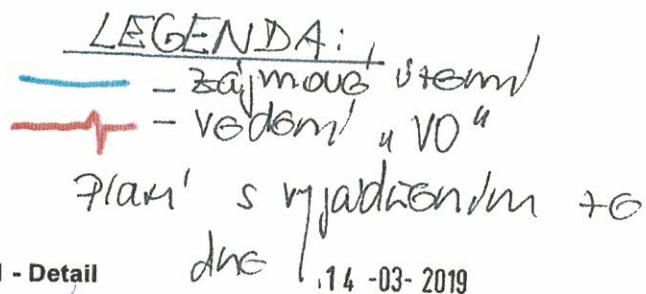 LEGENDA:
– zájmové území
– vedení „VO“
Platí s vyjádřením ze
dne 14 -03- 2019
- Detail